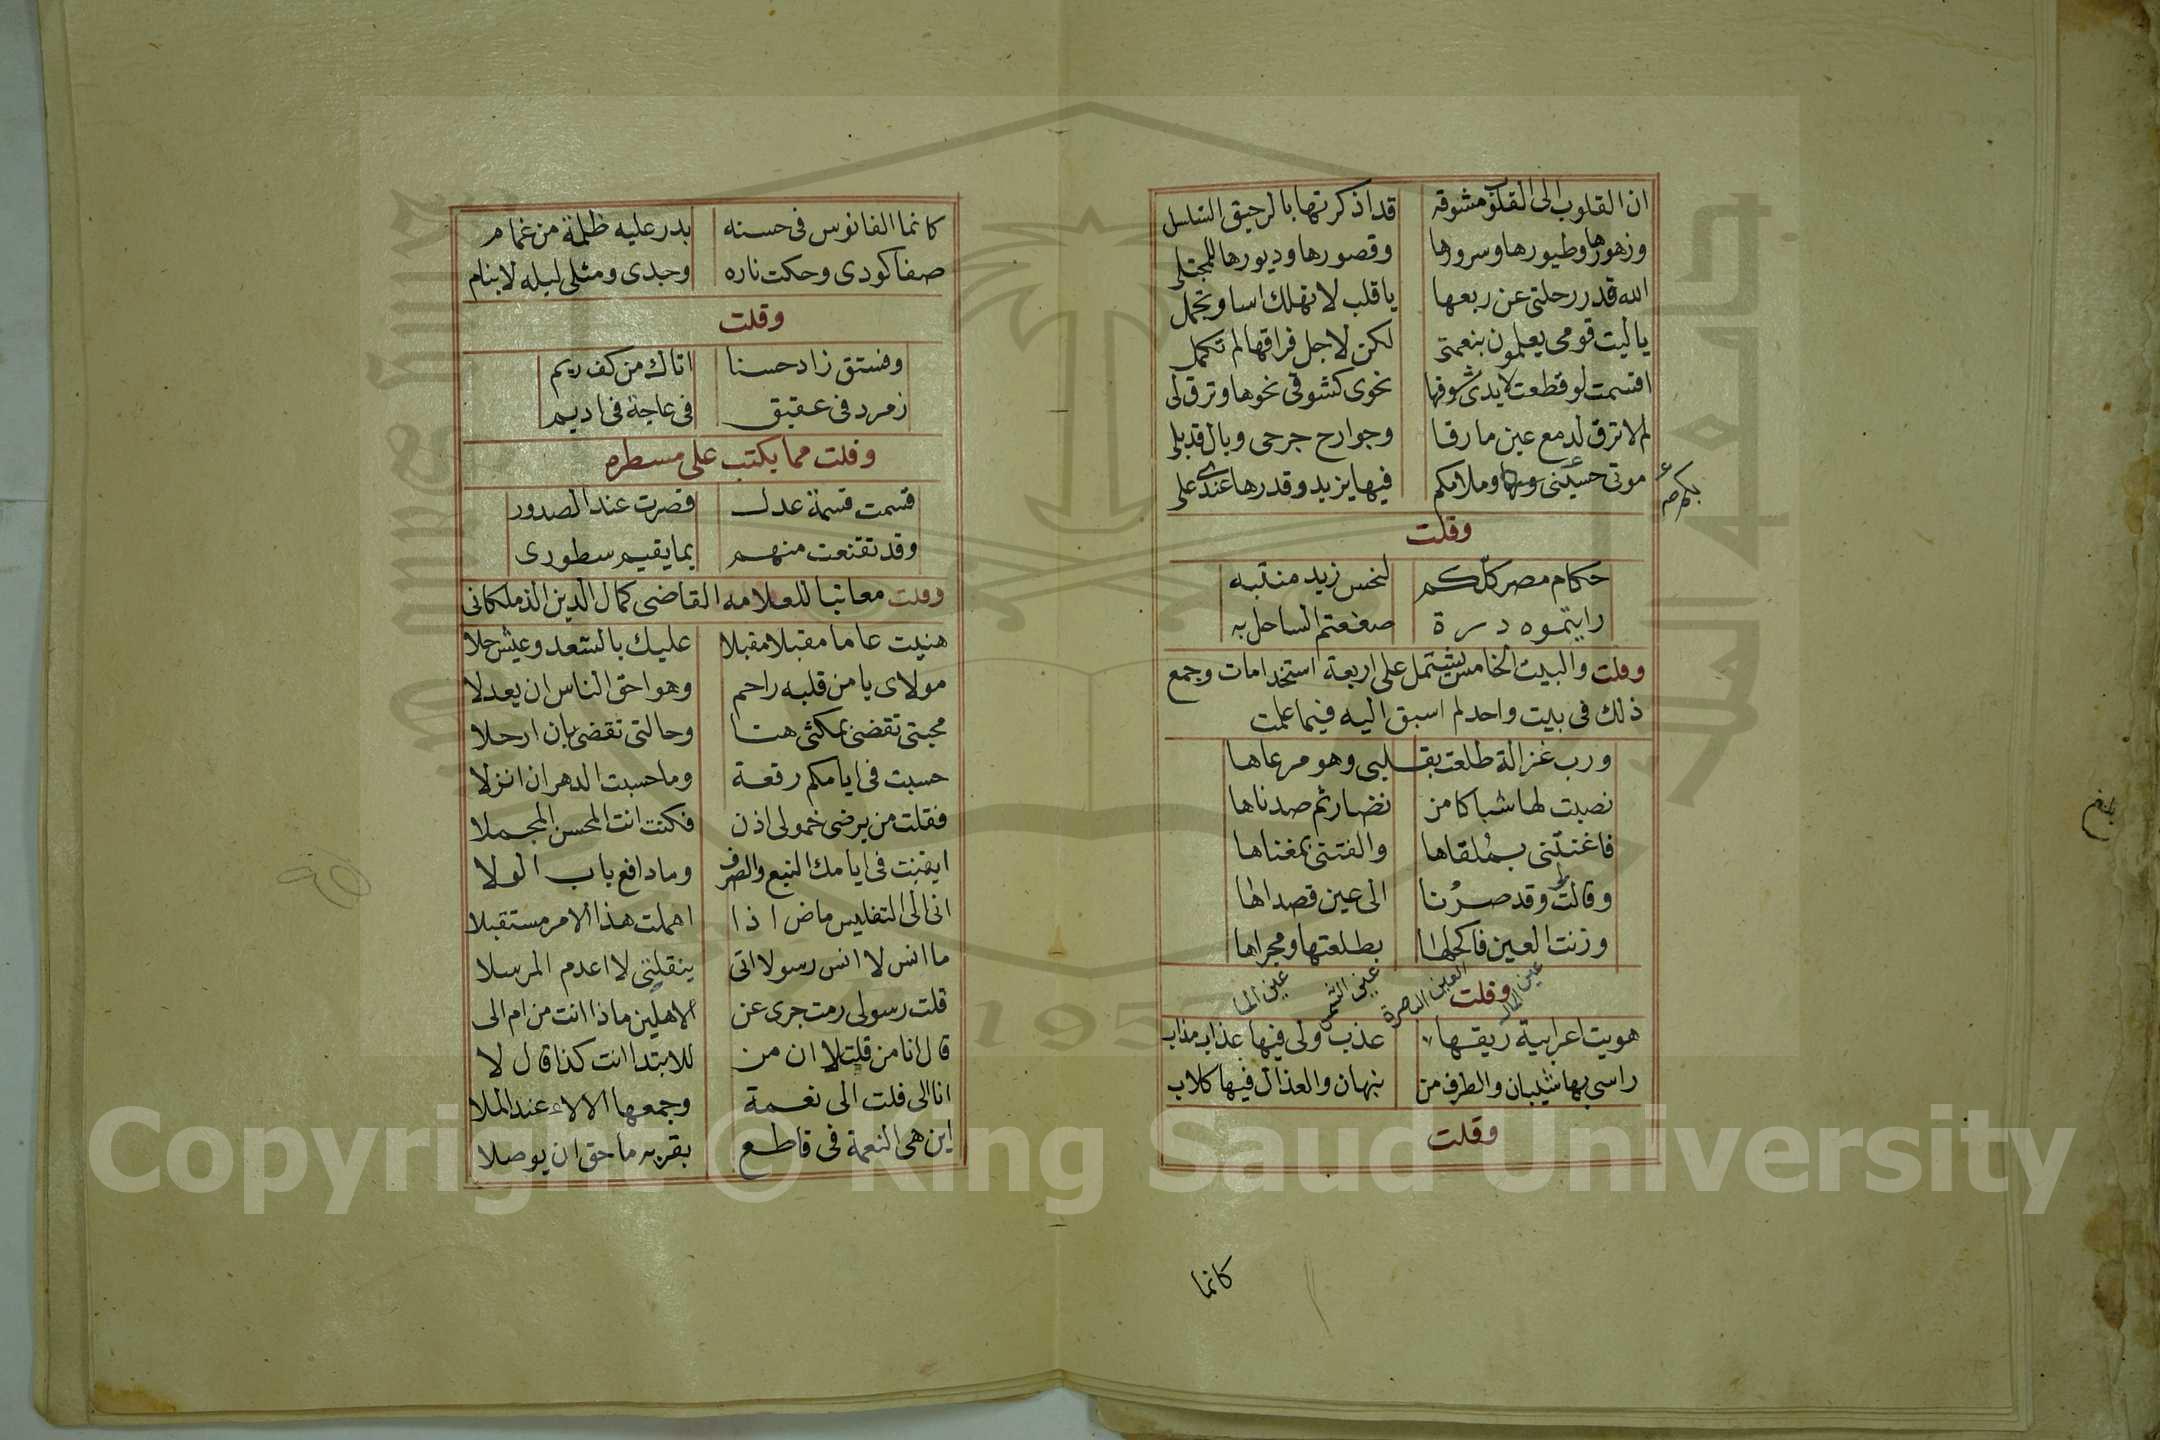 ان القلوب الى القلوب مشوقه قد اذكرتها بالرحيق السلسل
وزهورها وطيورها وسرورها وقصورها وديورها للمجتلى
الله قدر رحلتى عن ربعها ياقلب لا تهلك اسا وتجمل
ياليت قومى يعلمون بنعمتى لكن لاجل فراقها لم تكمل
اقسمت لو قطعت لايدى شوقها نحوى كشوقى نحوها وترق لى
لم لا ترق لدمع عين ما رقا وجوارح جرحى وبال قد بلى
موتى حسينى وملامكم فيها يزيد وقدرها عندى على
وقلت
حكام مصر كلكم لنحس زيد منتبه
رايتموه درة صفعتم الساحل به
وقلت والبيت الخامس يشتمل على اربعة استخدامات وجمع
ذلك فى بيت واحد لم اسبق اليه فيما علمت
ورب غزالة طلعت بقلبى وهو مرعاها
نصبت لها شباكا من نضار ثم صدناها
والفتنى بمغناها
وقالت وقد صرنا الى عين قصداها
وزنت العين فاكحلها بطلعتها ومجراها
عين المال العين الباصرة عين الشمس عين الما
وقلت
هويت اعرابية ريقها عذب ولى فيها عذاب مذاب
راسى بها شيبان والطرف من نبهان والعذال فيها كلاب
وقلت
كانما
بلغ
كانما الفانوس فى حسنه بدر عليه ظلمة من غمام
صفا كودى وحكت ناره وجدى ومثلى ليله لا ينام
وقلت
وفستق زاد حسنا اتاك من كف ريم
زمرد فى عقيق فى عاجة فى اديم
وقلت مما يكتب على مسطره
قسمت قسمة عدل فصرت عند الصدور
وقد تقنعت منهم بما يقيم سطورى
وقلت معاتبا للعلامه القاضى كمال الدين الزملكانى
هنيت عاما مقبلا مقبلا عليك بالسعد وعيش حلا
مولاى يا من قلبه راحم وهو احق الناس ان يعدلا
محبتى تقضى بمكثى هنا وحالتى تقضى بان ارحلا
حسبت فى ايامكم رفعة وما حسبت الدهر ان انزلا
فقلت من يرضى خمولى اذن فكنت انت المحسن المجملا
ايقنت فى ايامك المنع والصرف وما دافع باب الولا
انى الى التفليس ماض اذا اهملت هذا الامر مستقبلا
ما انس لا انس رسولا اتى ينقلنى لا اعدم المرسلا
قلت رسولى رمت جرى عن الاهلين ماذا انت من ام الى
قال انا من قلت لا ان من للابتدا انت كذا قال لا
انا الى قلت الى نغمة وجمعها الالاء عند الملا
اين هى النعمة فى قاطع بقربه ما حق ان يوصلا
Copyright © King Saud University
1957